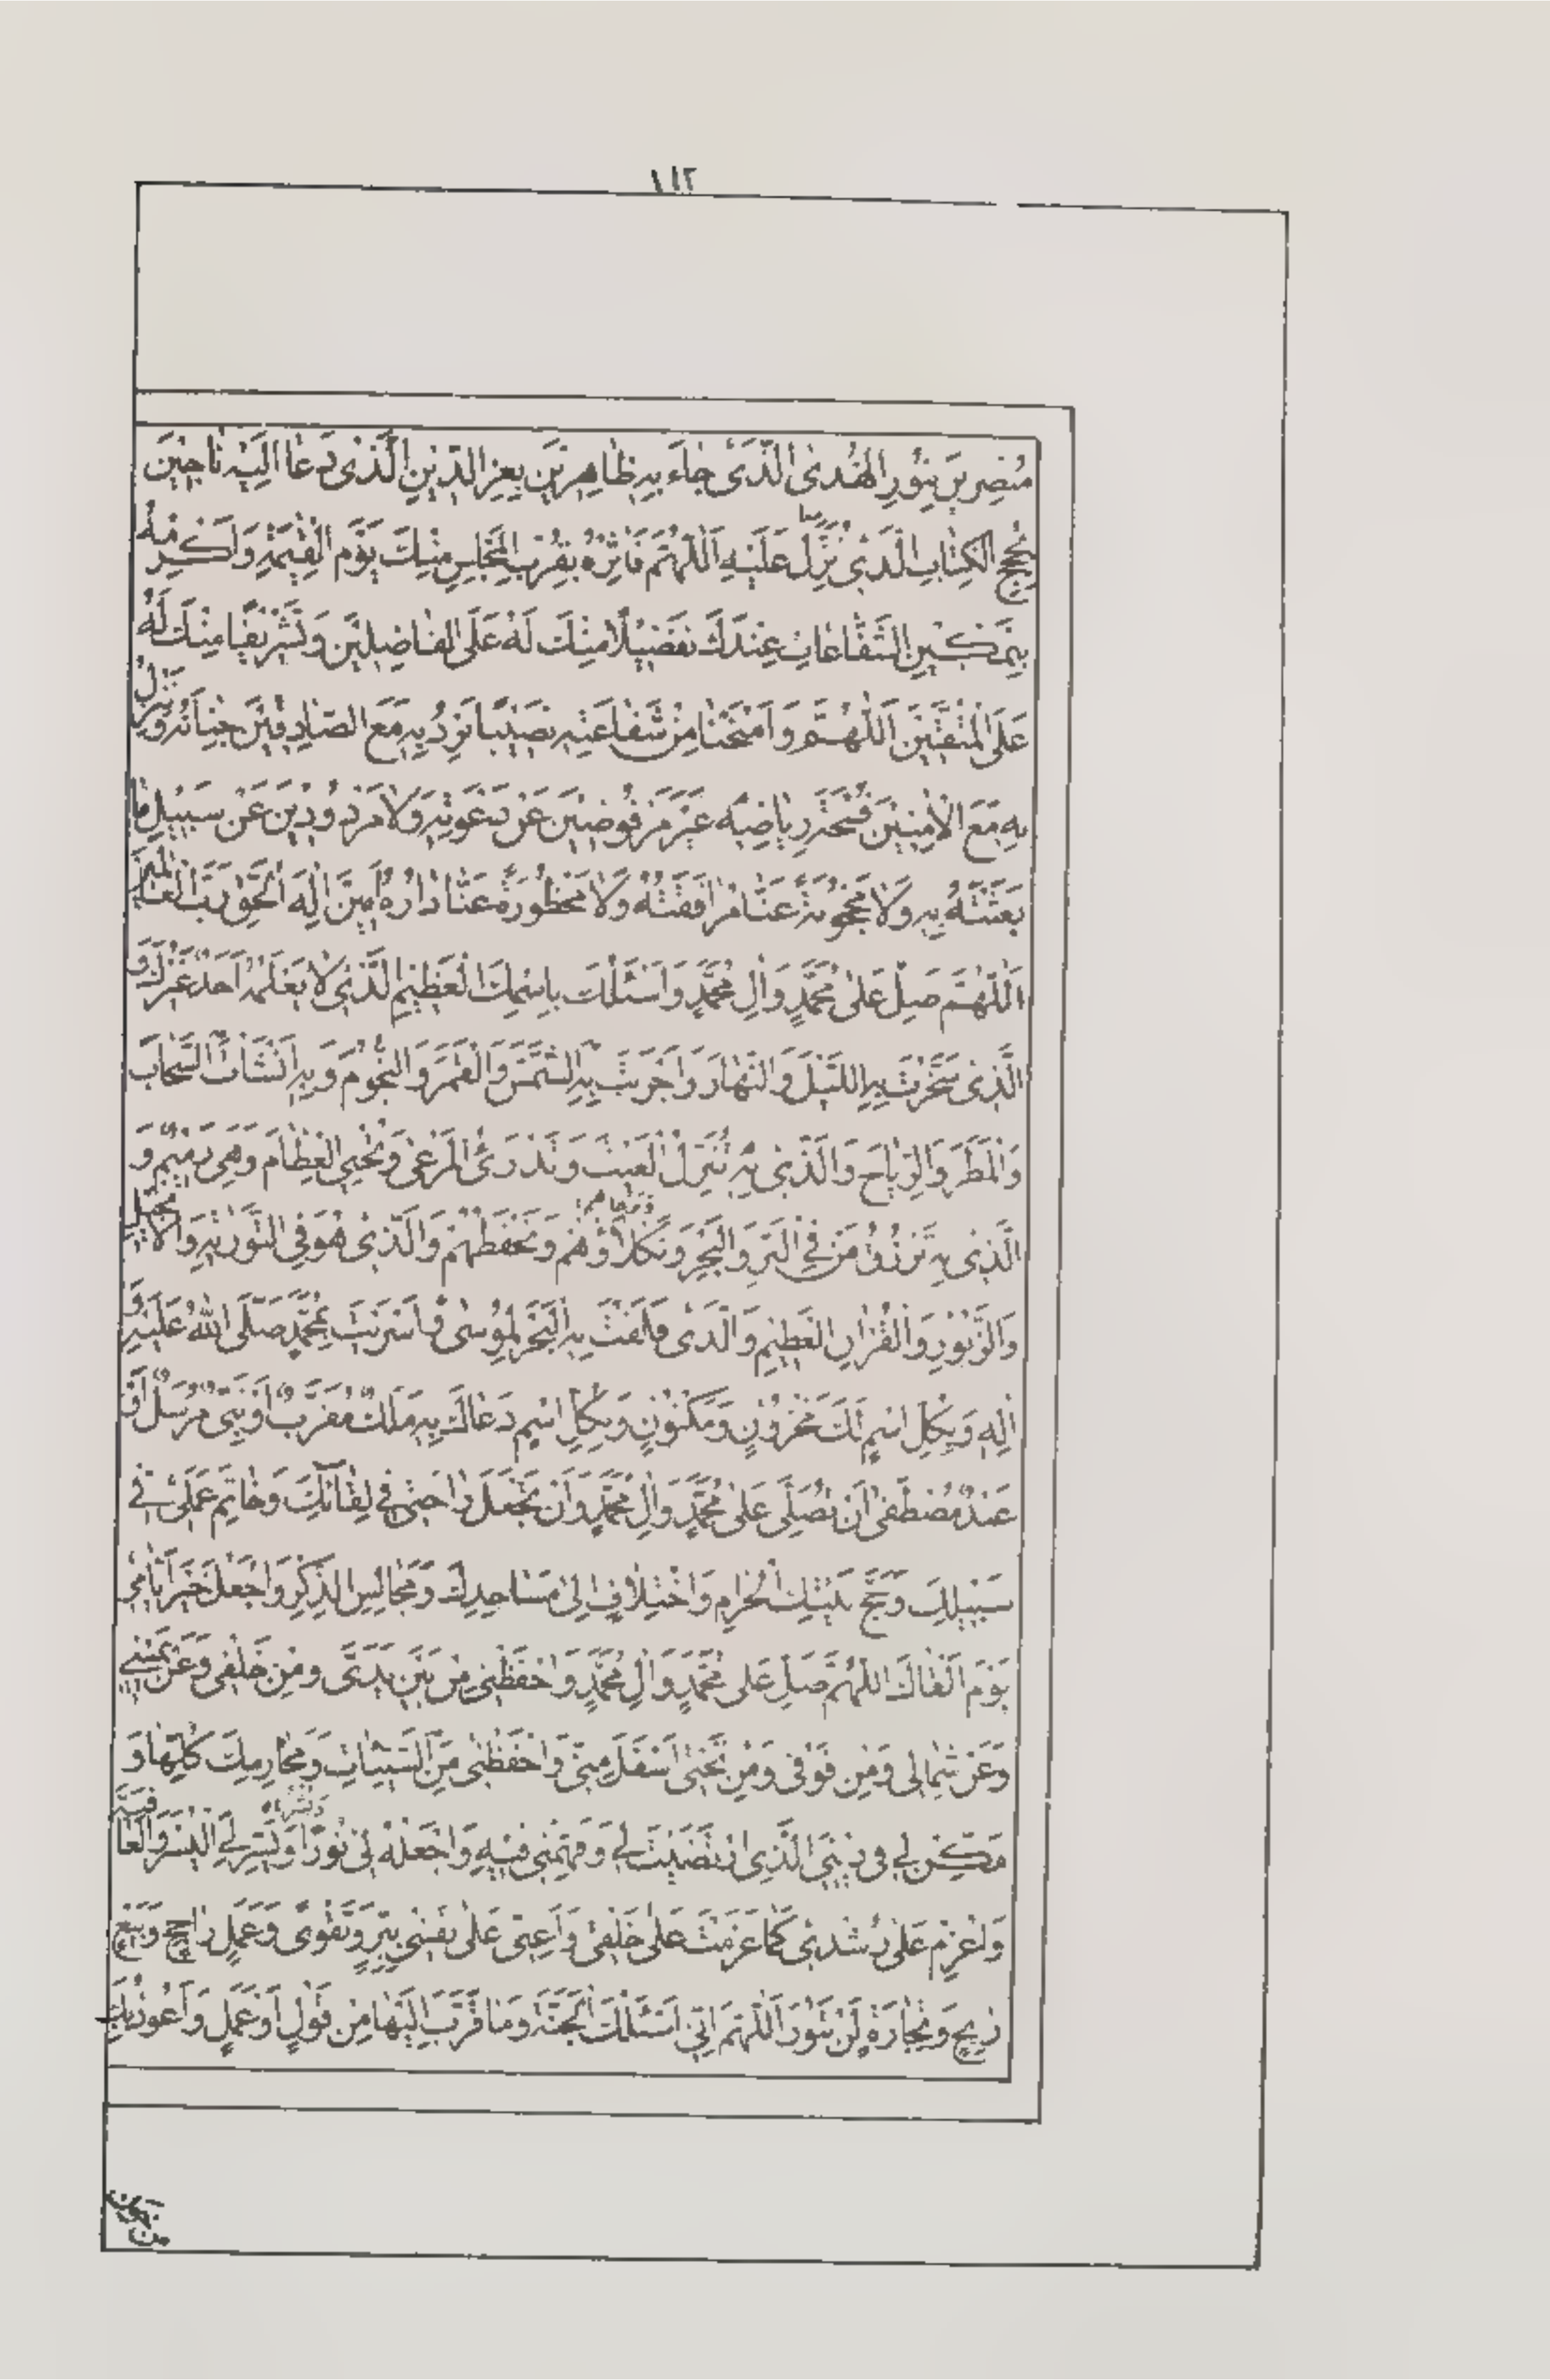 ١١٢
مُبْصِرِينَ بِنُورِ الْهُدَى الَّذِي جَاءَ بِهِ ظَاهِرِينَ بِعِزِّ الدِّينِ الَّذِي دَعَا إِلَيْهِ نَاجِينَ
بِحُجَجِ الْكِتَابِ الَّذِي نُزِّلَ عَلَيْهِ اَللّٰهُمَّ فَاٰثِرْهُ بِقُرْبِ الْمَجْلِسِ مِنْكَ يَوْمَ الْقِيٰمَةِ وَاَكْرِمْهُ
بِتَمْكِينِ الشَّفَاعَاتِ عِنْدَكَ تَفْضِيلًا مِنْكَ لَهُ عَلَى الْفَاضِلِينَ وَتَشْرِيفًا مِنْكَ لَهُ
عَلَى الْمُتَّقِينَ اَللّٰهُمَّ وَامْنَحْنَا مِنْ شَفَاعَتِهِ نَصِيبًا نَرِدُ بِهِ مَعَ الصَّادِقِينَ جِنَانَهُ وَنَنْزِلُ
بِهِ مَعَ الْاٰمِنِينَ فُسْحَةَ رِيَاضِهِ غَيْرَ مَرْفُوضِينَ عَنْ دَعْوَتِهِ وَلَا مَرْدُودِينَ عَنْ سَبِيلِ مَا
بَعَثْتَهُ بِهِ وَلَا مَحْجُوبَةً عَنَّا مُرَافَقَتُهُ وَلَا مَحْظُورَةً عَنَّا دَارُهُ اٰمِينَ اِلٰهَ الْحَقِّ رَبَّ الْعَالَمِينَ
اَللّٰهُمَّ صَلِّ عَلٰى مُحَمَّدٍ وَاٰلِ مُحَمَّدٍ وَاَسْئَلُكَ بِاسْمِكَ الْعَظِيمِ الَّذِي لَا يَعْلَمُهُ اَحَدٌ غَيْرُكَ وَ
الَّذِي سَخَّرْتَ بِهِ اللَّيْلَ وَالنَّهَارَ وَاَجْرَيْتَ بِهِ الشَّمْسَ وَالْقَمَرَ وَالنُّجُومَ وَبِهِ اَنْشَأْتَ السَّحَابَ
وَالْمَطَرَ وَالرِّيَاحَ وَالَّذِي بِهِ تُنَزِّلُ الْغَيْثَ وَتَذْرَئُ الْمَرْعٰى وَتُحْيِي الْعِظَامَ وَهِيَ رَمِيمٌ وَ
الَّذِي بِهِ تَرْزُقُ مَنْ فِي الْبَرِّ وَالْبَحْرِ وَتَكْلَأُهُمْ وَتَحْفَظُهُمْ وَالَّذِي هُوَ فِي التَّوْرٰيةِ وَالْاِنْجِيلِ
وَالزَّبُورِ وَالْقُرْاٰنِ الْعَظِيمِ وَالَّذِي فَلَقْتَ بِهِ الْبَحْرَ لِمُوسٰى وَاَسْرَيْتَ بِمُحَمَّدٍ صَلَّى اللّٰهُ عَلَيْهِ وَ
اٰلِهِ وَبِكُلِّ اسْمٍ لَكَ مَخْزُونٍ وَمَكْنُونٍ وَبِكُلِّ اسْمٍ دَعَاكَ بِهِ مَلَكٌ مُقَرَّبٌ اَوْ نَبِيٌّ مُرْسَلٌ اَوْ
عَبْدٌ مُصْطَفٰى اَنْ تُصَلِّيَ عَلٰى مُحَمَّدٍ وَاٰلِ مُحَمَّدٍ وَاَنْ تَجْعَلَ رَاحَتِي فِي لِقَائِكَ وَخَاتِمَ عَمَلِي فِي
سَبِيلِكَ وَحَجَّ بَيْتِكَ الْحَرَامِ وَاخْتِلَافٍ اِلٰى مَسَاجِدِكَ وَمَجَالِسِ الذِّكْرِ وَاجْعَلْ خَيْرَ اَيَّامِي
يَوْمَ اَلْقَاكَ اَللّٰهُمَّ صَلِّ عَلٰى مُحَمَّدٍ وَاٰلِ مُحَمَّدٍ وَاحْفَظْنِي مِنْ بَيْنِ يَدَيَّ وَمِنْ خَلْفِي وَعَنْ يَمِينِي
وَعَنْ شِمَالِي وَمِنْ فَوْقِي وَمِنْ تَحْتِي اَسْفَلَ مِنِّي وَاحْفَظْنِي مِنَ السَّيِّئَاتِ وَمَحَارِمِكَ كُلِّهَا وَ
مَكِّنْ لِي فِي دِينِيَ الَّذِي ارْتَضَيْتَ لِي وَفَهِّمْنِي فِيهِ وَاجْعَلْهُ لِي نُورًا وَيَسِّرْ لِيَ الْيُسْرَ وَالْعَافِيَةَ
وَاعْزِمْ عَلٰى رُشْدِي كَمَا عَزَمْتَ عَلٰى خَلْقِي وَاَعِنِّي عَلٰى نَفْسِي بِبِرٍّ وَتَقْوًى وَعَمَلٍ رَاجِحٍ وَبَيْعٍ
رَبِيحٍ وَتِجَارَةٍ لَنْ تَبُورَ اَللّٰهُمَّ اِنِّي اَسْئَلُكَ الْجَنَّةَ وَمَا قَرَّبَ اِلَيْهَا مِنْ قَوْلٍ اَوْ عَمَلٍ وَاَعُوذُ بِكَ